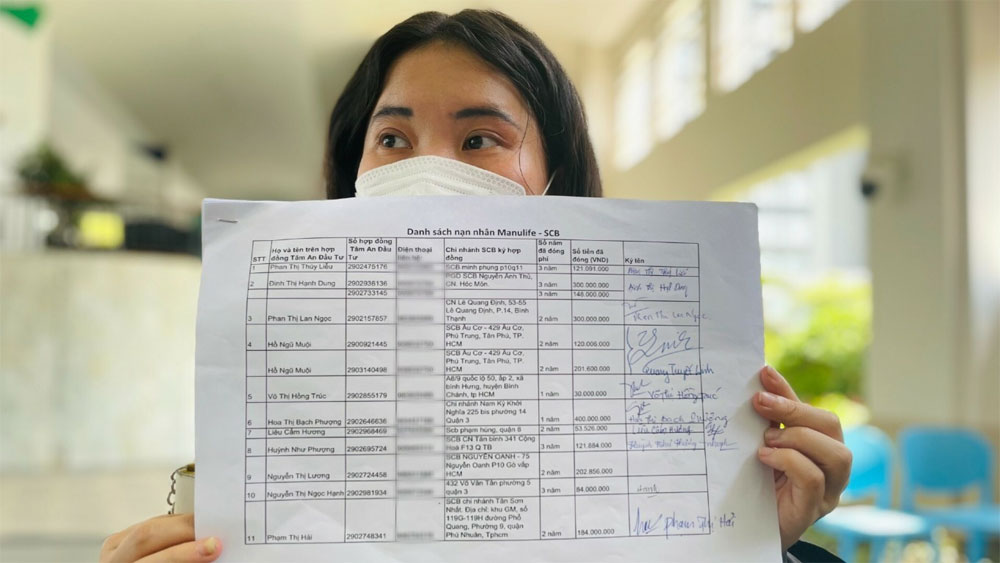 Danh sách nạn nhân Manulife - SCB
STT Họ và tên trên hợp đồng Tâm An Đầu Tư Số hợp đồng Tâm An Đầu Tư Điện thoại Chi nhánh SCB ký hợp đồng Số năm đã đóng phí Số tiền đã đóng (VND) Ký tên
1 Phan Thị Thúy Liễu 2902475176 SCB minh phung p10q11 3 năm 121.091.000
2 Đinh Thị Hạnh Dung 2902938136 PGD SCB Nguyễn Ảnh Thủ, CN. Hóc Môn. 3 năm 300.000.000
2902733145 3 năm 148.000.000
3 Phan Thị Lan Ngọc 2902157857 CN Lê Quang Định, 53-55 Lê Quang Định, P.14, Bình Thạnh 2 năm 300.000.000 Phan Thị Lan Ngọc
4 Hồ Ngũ Muội 2900921445 SCB Âu Cơ - 429 Âu Cơ, Phú Trung, Tân Phú, TP. HCM 2 năm 120.006.000
Hồ Ngũ Muội 2903140498 SCB Âu Cơ - 429 Âu Cơ, Phú Trung, Tân Phú, TP. HCM 2 năm 201.600.000
5 Võ Thị Hồng Trúc 2902855179 A8/9 quốc lộ 50, ấp 2, xã bình Hưng, huyện Bình Chánh, tp HCM 1 năm 30.000.000 Võ Thị Hồng Trúc
6 Hoa Thị Bạch Phượng 2902646636 Chi nhánh Nam Kỳ Khởi Nghĩa 225 bis phường 14 Quận 3 1 năm 400.000.000
7 Liêu Cẩm Hương 2902968469 Scb phạm hùng, quận 8 2 năm 53.526.000 Liêu Cẩm Hương
8 Huỳnh Như Phượng 2902695724 SCB CN Tân bình 341 Cộng Hoà F13 Q TB 3 năm 121.884.000
9 Nguyễn Thị Lương 2902724458 SCB NGUYEN OANH - 75 Nguyễn Oanh P10 Gò vấp HCM 2 năm 202.856.000
10 Nguyễn Thị Ngọc Hạnh 2902981934 432 Võ Văn Tần phường 5 quận 3 3 năm 84.000.000
11 Phạm Thị Hải 2902748341 SCB chi nhánh Tân Sơn Nhất. Địa chỉ: khu GM, số 119G-119H đường Phổ Quang, Phường 9, quận Phú Nhuận, Tphcm 2 năm 184.000.000 phạm Thị Hải